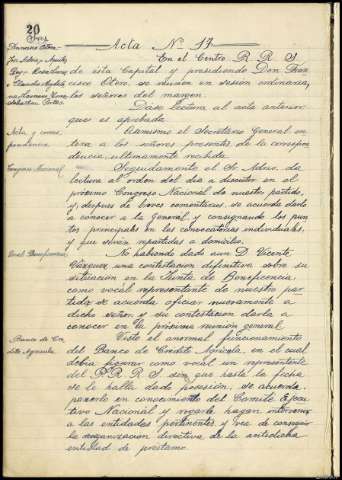 20
Acta Nº 17
En el Centro R. R. S.
de esta Capital y presidiendo Don Fran
cisco Otero, se reunen en sesion ordinaria,
los señores del margen.
Dase lectura al acta anterior
que es aprobada
Acta y corres
pondencia
Asimismo el Secretario General en
tera a los señores presentes de la correspon
dencia ultimamente recibida.
Congreso Nacional
Seguidamente el Sr. dá
lectura al orden del dia a discutir en el
próximo Congreso Nacional de nuestro partido,
y, despues de breves comentarios, se acuerda darlo
a conocer a la General y consignando los pun
tos principales en las convocatorias individuales,
y que seran repartidas a domicilio.
Beneficencia
No habiendo dado aun D. Vicente
Vazquez, una contestación definitiva sobre su
situación en la Junta de Beneficencia,
como vocal representante de nuestro par
tido se acuerda oficiar nuevamente a
dicho señor y su contestación darla a
conocer en la próxima reunión general.
Banco de Cre
dito Agricola
Visto el anormal funcionamiento
del Banco de Credito Agricola, en el cual
debia figurar como vocal un representante
del P. R. R. S. sin que hasta la fecha
se le halla dado posesión, se acuerda
ponerlo en conocimiento del Comité Ejecu
tivo Nacional y rogarle hagan intervenir
a las entidades pertinentes y vea de conseguir
la organización directiva de la antedicha
entidad de prestamo.